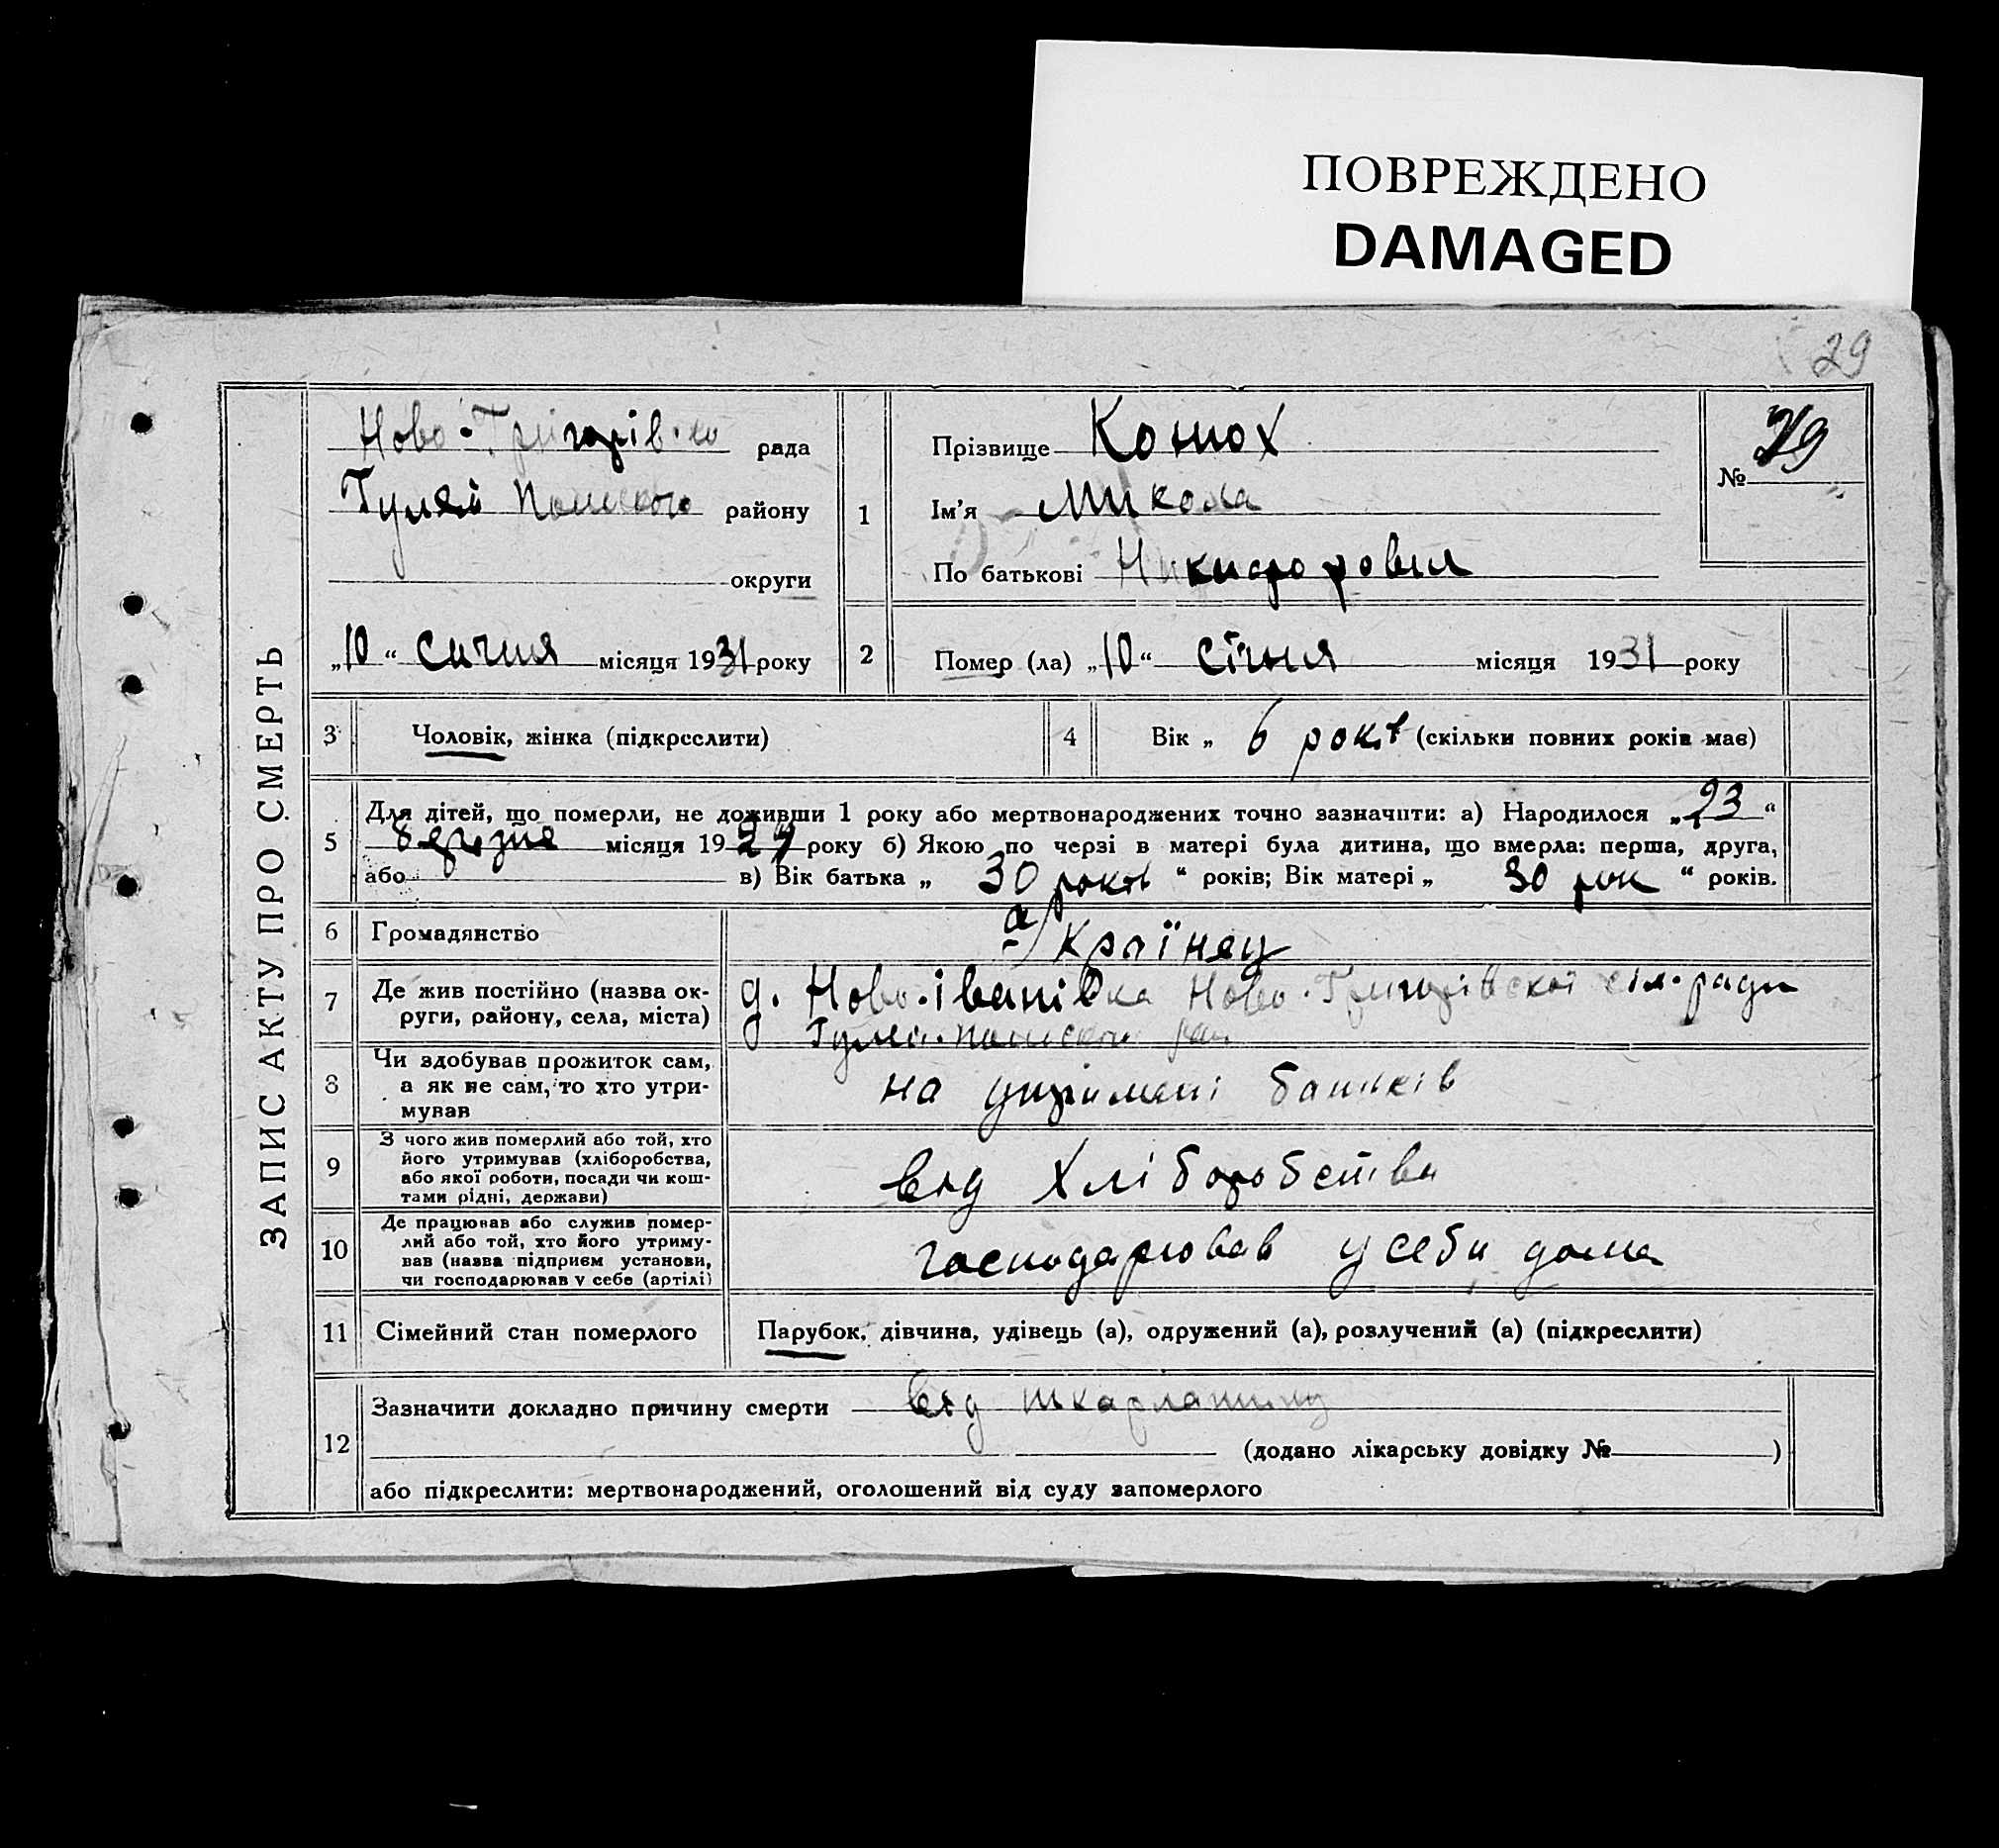 ПОВРЕЖДЕНО
DAMAGED
29
ЗАПИС АКТУ ПРО СМЕРТЬ
Ново-Григорівско рада
Гуляй Польского району
округи
„10“ сичня місяця 1931 року
1
Прізвище Конюх
Ім'я Микола
По батькові Никифорович
№ 29
2
Помер (ла) „10“ січня місяця 1931 року
3 Чоловік, жінка (підкреслити)
4 Вік „ 6 років (скільки повних років має)
5 Для дітей, що померли, не доживши 1 року або мертвонароджених точно зазначити: а) Народилося „23“
березня місяця 1924 року б) Якою по черзі в матері була дитина, що вмерла: перша, друга,
або в) Вік батька „ 30 років “ років; Вік матері „ 30 рок “ років.
6 Громадянство Країнец
7 Де жив постійно (назва ок-
руги, району, села, міста)
д. Ново-іванівка Ново-Григорівскої сіл-ради
Гуляй-Польского рай
8 Чи здобував прожиток сам,
а як не сам, то хто утри-
мував
на утримані батьків
9 З чого жив померлий або той, хто
його утримував (хліборобства,
або якої роботи, посади чи кош-
тами рідні, держави)
від Хліборобства
10 Де працював або служив помер-
лий або той, хто його утриму-
вав (назва підприєм установи,
чи господарював у себе (артілі)
господарював у себи дома
11 Сімейний стан померлого Парубок, дівчина, удівець (а), одружений (а), розлучений (а) (підкреслити)
12 Зазначити докладно причину смерти від шкарлатини
(додано лікарську довідку № )
або підкреслити: мертвонароджений, оголошений від суду запомерлого